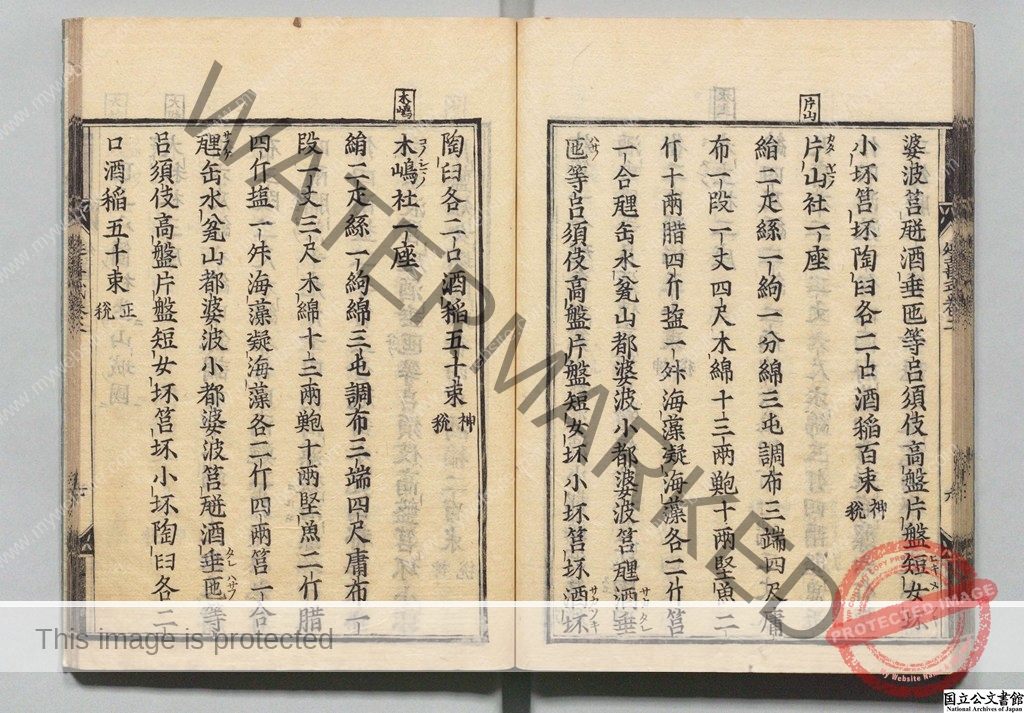 片山
婆波筥𤭯酒垂匜等呂須伎高盤片盤短女坏
小坏筥坏陶臼各二口酒稲百束神税
片山社一座
絁二疋絲一絇一分綿三屯調布三端四尺庸
布一段一丈四尺木綿十三兩鮑十兩堅魚二
斤十兩腊四斤塩一舛海藻凝海藻各二斤筥
一合𤭯缶水瓫山都婆波小都婆波筥𤭯酒垂
匜等呂須伎高盤片盤短女坏小坏筥坏酒坏
木嶋
陶臼各二口酒稲五十束神税
木嶋社一座
絹二疋絲一絇綿三屯調布三端四尺庸布一
段一丈三尺木綿十三兩鮑十兩堅魚二斤腊
四斤塩一舛海藻凝海藻各二斤四兩筥一合
𤭯缶水瓫山都婆波小都婆波筥𤭯酒垂匜等
呂須伎高盤片盤短女坏筥坏小坏陶臼各二
口酒稲五十束正税
WATERMARKED
This image is protected
COPY PROTECTED
PROTECTED IMAGE
by My Website Name
国立公文書館
National Archives of Japan